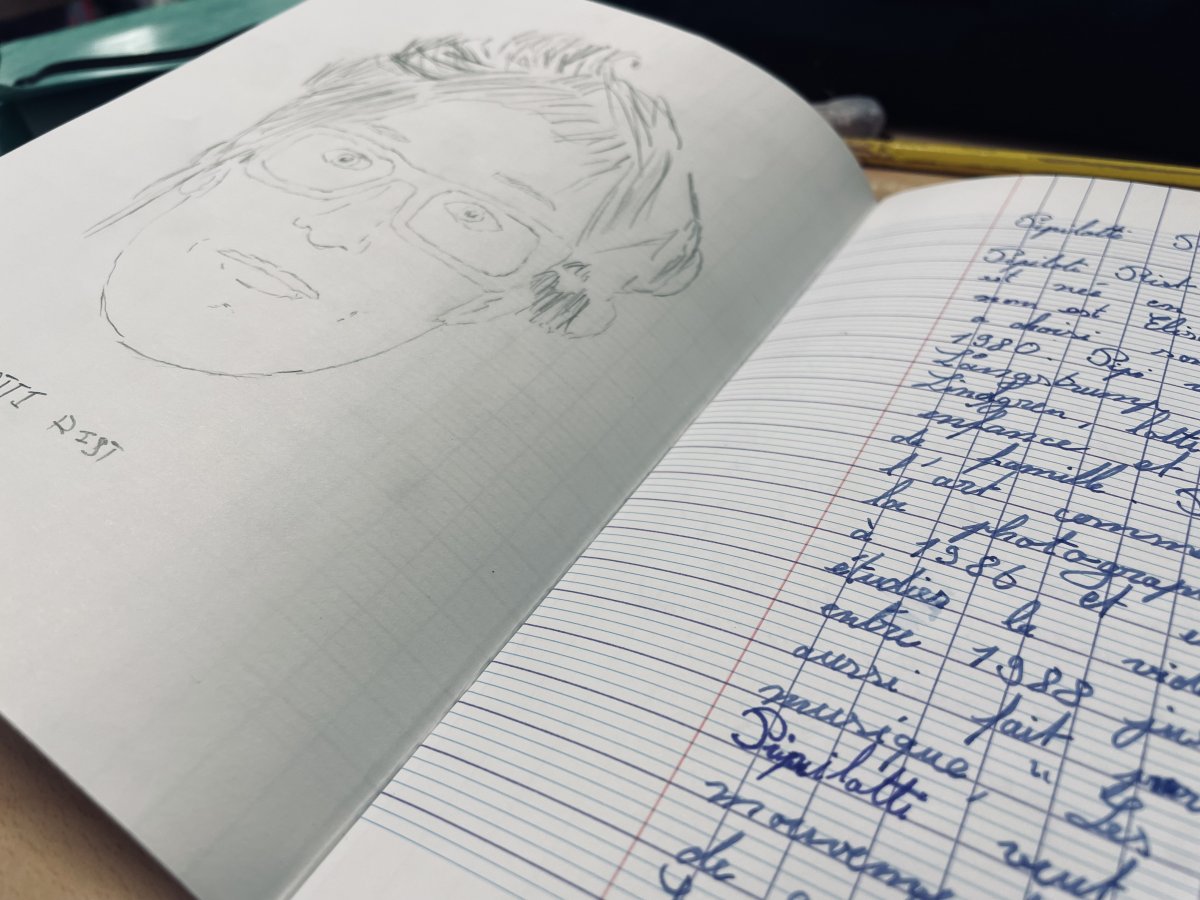 TTI RIST
Pipilotti
Pipilotti Rist
est née en
nom est Elis
a choisi son
1980. Pipi
Långstrump
Lindgren, lotti
enfance et
de famille.
l'art comm
la photograp
à 1986 et
étudier la vid
entre 1988 ju
aussi fait
musique, "Les
Pipilotti veut
mouveme
de